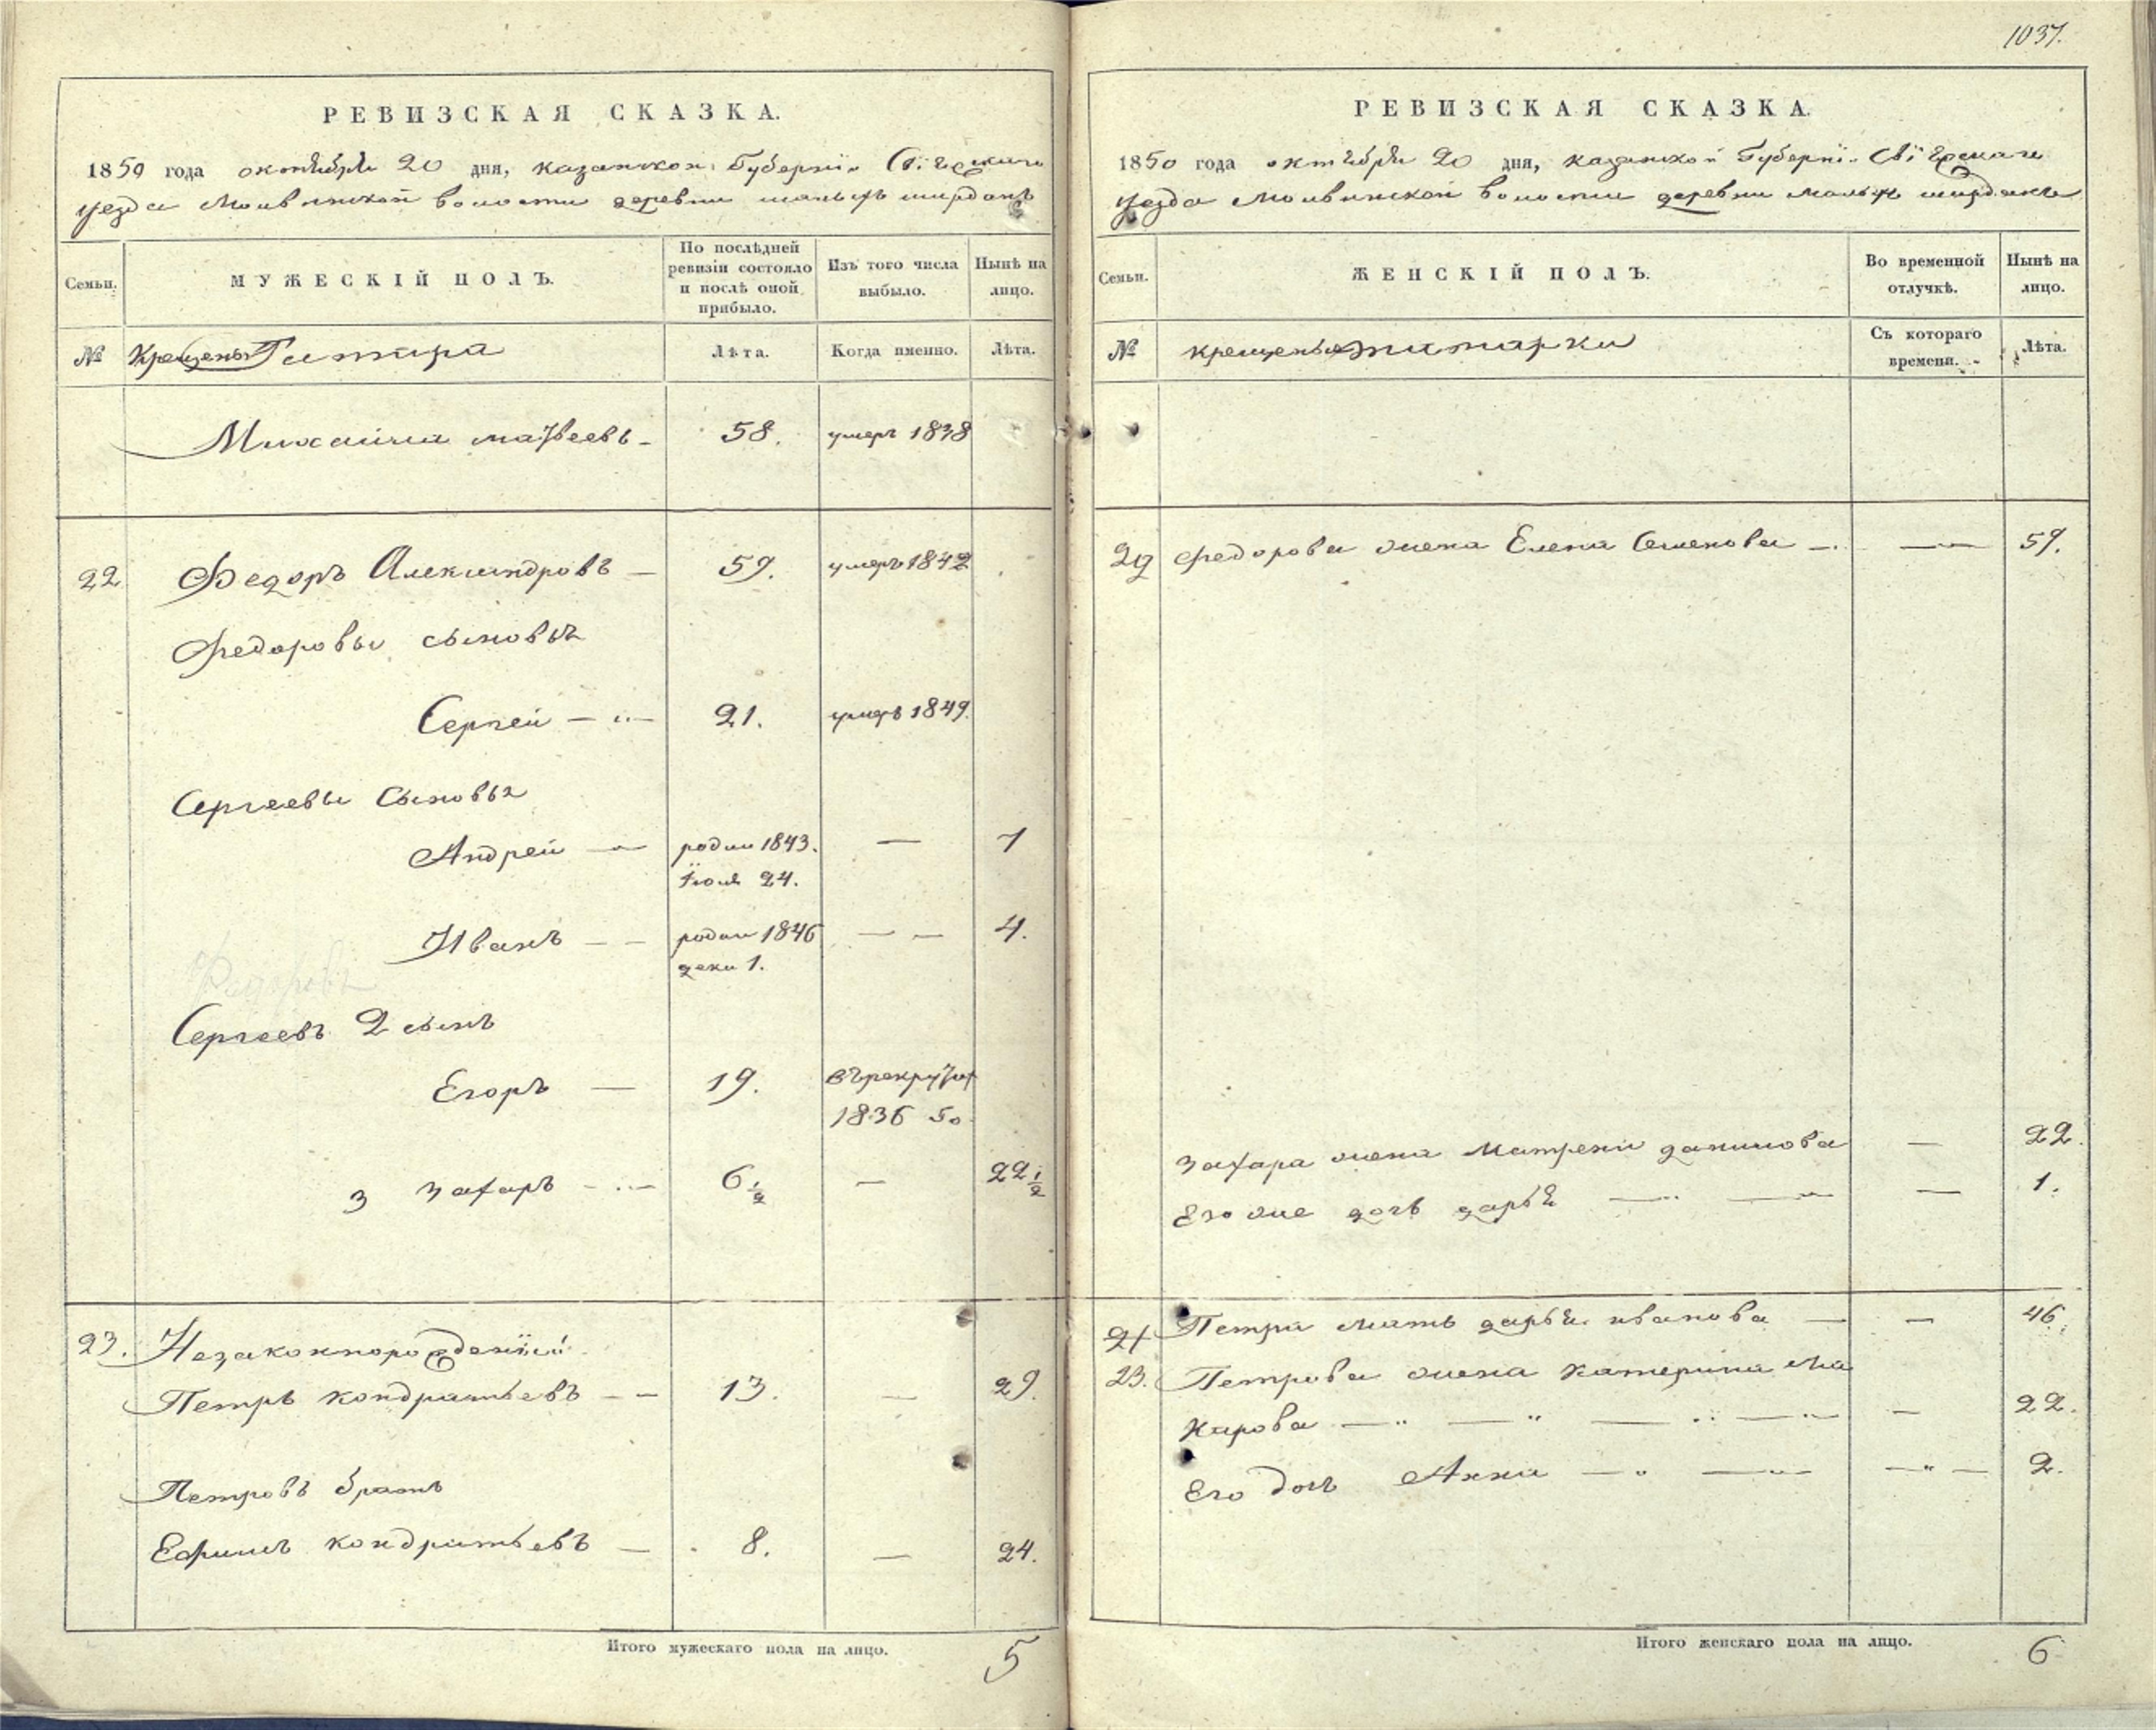 РЕВИЗСКАЯ СКАЗКА.
1850 года октября 20 дня, казанской Губернiи
уезда волости деревни малыхъ ширданъ
Семьи.
МУЖЕСКIЙ ПОЛЪ.
По послѣдней ревизiи состояло и послѣ оной прибыло.
Изъ того числа выбыло.
Нынѣ на лицо.
№
Крещены
Лѣта.
Когда именно.
Лѣта.
Михайла матвеевъ 58. умеръ 1838
22 Федоръ Александровъ 59. умеръ 1842
Федоровы сыновья
Сергей 21. умеръ 1849.
Сергеевы Сыновья
Андрей родил 1843. — 7
Iюля 24.
Иванъ родил 1846 — — 4.
дека 1.
Федоровъ
Сергеевъ 2 сынъ
Егоръ — 19. въ рекруты
1836 го
3 Захаръ 6 1/2 — 22 1/2
23. Незаконнорожденнiй
Петръ кондратьевъ 13. — 29.
Петровъ братъ
Ефимъ кондратьевъ 8. — 24.
Итого мужескаго пола на лицо. 5
1037.
РЕВИЗСКАЯ СКАЗКА.
1850 года октября 20 дня, казанской Губернiи
уезда волости деревни малыхъ ширданъ
Семьи.
ЖЕНСКIЙ ПОЛЪ.
Во временной отлучкѣ.
Нынѣ на лицо.
№
крещены
Съ котораго времени.
Лѣта.
22 Федорова жена Елена Семенова — 59.
Захара жена Матрена данилова — 22.
Его же дочь дарья — 1.
Петра мать дарья иванова — 46.
23. Петрова жена катерина Ма
карова — 22.
Его дочь Анна — 2.
Итого женскаго пола на лицо. 6